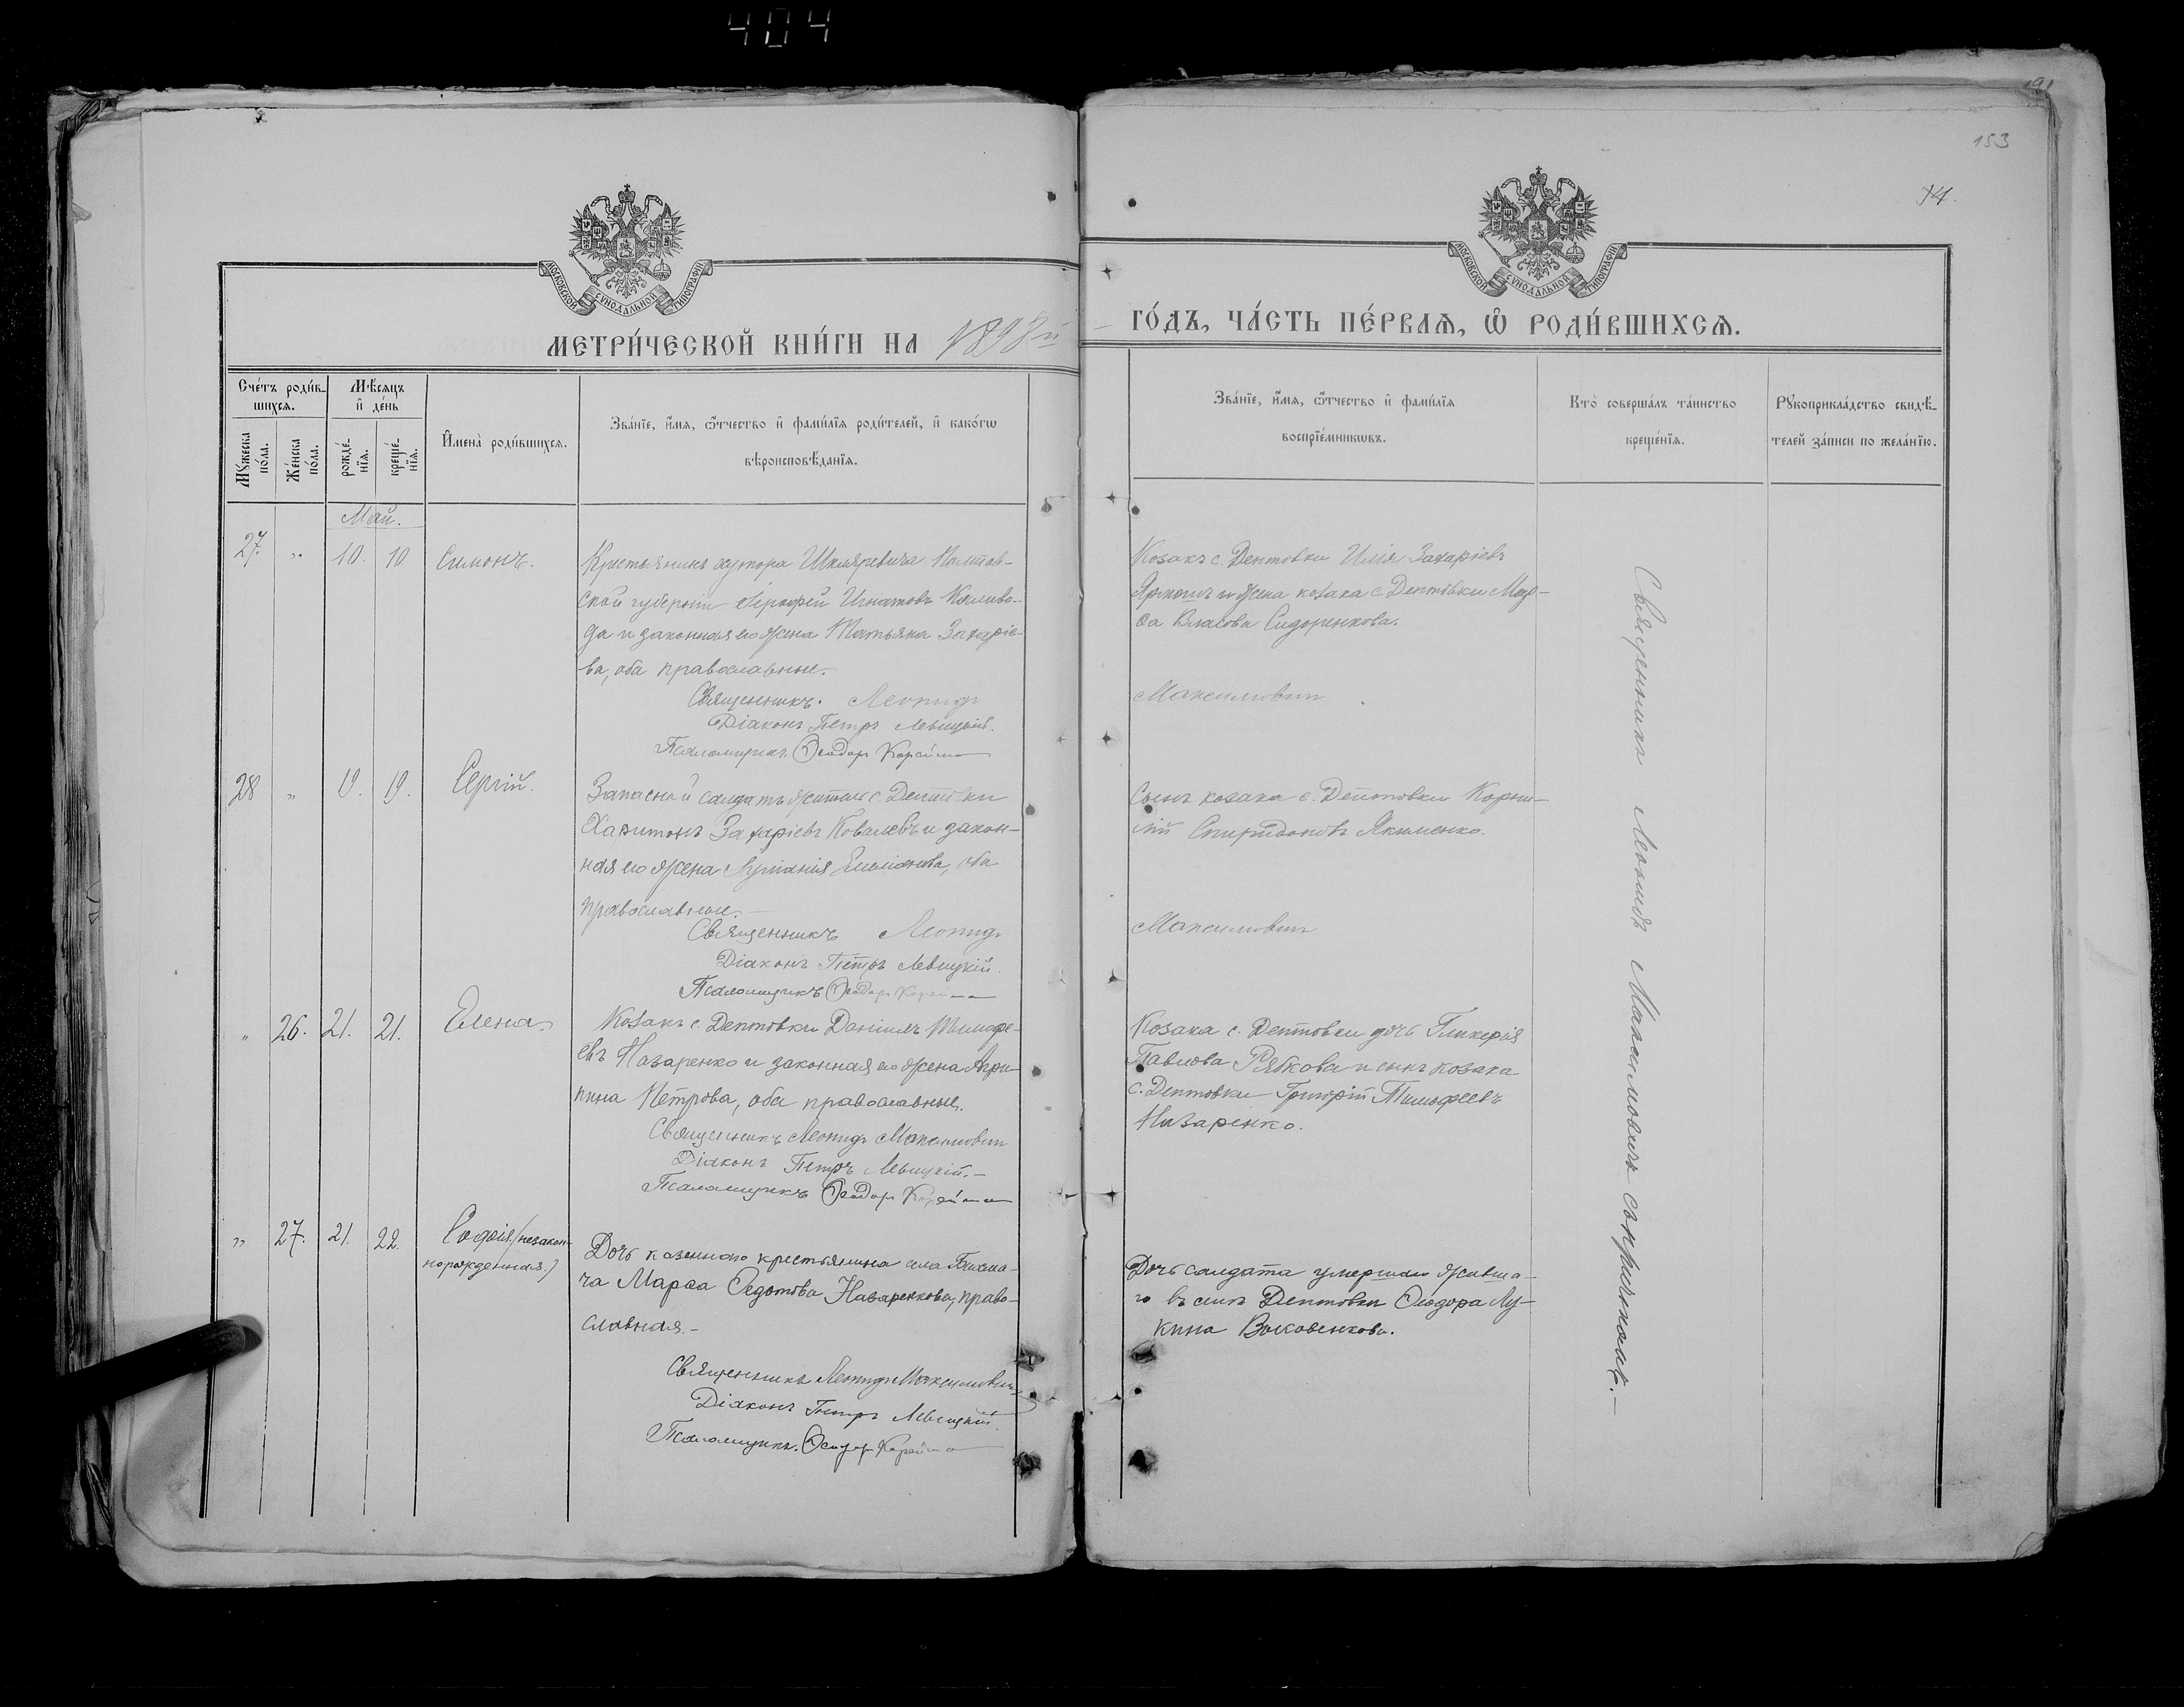 404
153
14.
МОСКОВСКОЙ СУНОДАЛЬНОЙ ТИПОГРАФІИ
МОСКОВСКОЙ СУНОДАЛЬНОЙ ТИПОГРАФІИ
МЕТРИ́ЧЕСКОЙ КНИ́ГИ НА 1898й
ГО́ДЪ, ЧА́СТЬ ПЕ́РВАѦ, Ѡ РОДИ́ВШИХСѦ.
Сче́тъ роди́в-
шихсѧ.
Мѣ́сяцъ
и де́нь
Му́жеска по́ла.
Же́нска по́ла.
рожде́-нїѧ.
креще́-нїѧ.
Имена̀ роди́вшихсѧ.
Зва́нїе, и́мѧ, ѻ́тчество и фами́лїѧ роди́телей, и како́гѡ
вѣроисповѣ́данїѧ.
Зва́нїе, и́мѧ, ѻ́тчество и фами́лїѧ
воспрїе́мникѡвъ.
Кто̀ соверша́лъ та́инство
креще́нїѧ.
Рꙋкоприкла́дство свидѣ́-
телей за́писи по жела́нїю.
Май.
27. „ 10. 10 Симонъ.
Крестьянинъ хутора Шкляревича Полтав-
ской губерніи Іерофей Игнатовъ Коливо-
да и законная его жена Татьяна Захаріе-
ва, оба православные.
Священникъ. Леонидъ
Діаконъ Петръ Левицкій.
Псаломщикъ Ѳеодоръ Корейша
Козакъ с. Дептовки Илія Захаріевъ
и жена козака с. Дептовки Мар-
ѳа Власова Сидоренкова.
Максимовичъ
28 „ 19. Сергій.
Запасной солдатъ житель с. Дептовки
Харитонъ Захаріевъ Ковалевъ и закон-
ная его жена Емиліанова, оба
православные.
Священникъ Леонидъ
Діаконъ Петръ Левицкій.
Псаломщикъ Ѳеодоръ Корейша
Сынъ козака с. Дептовки Корни-
лій Спиридоновъ Якименко.
Максимовичъ
„ 26. 21. 21. Елена.
Козакъ с. Дептовки Даніилъ Тимофе-
евъ Назаренко и законная его жена Агри-
пина Петрова, оба православные.
Священникъ Леонидъ Максимовичъ
Діаконъ Петръ Левицкій.
Псаломщикъ Ѳеодоръ Корейша
Козака с. Дептовки дочь Гликерія
Павлова Рябкова и сынъ козака
с. Дептовки Григорій Тимофеевъ
Назаренко.
„ 27. 21. 22. Софія (незакон-
норожденная.)
Дочь казеннаго крестьянина села Бахма-
ча Марѳа Ѳедотова Назаренкова, право-
славная.
Священникъ Леонидъ Максимовичъ
Діаконъ Петръ Левицкій.
Псаломщикъ. Ѳеодоръ Корейша
Дочь солдата умершаго живша-
го въ селѣ Дептовки Ѳеодора Лу-
кина
Священникъ Леонидъ Максимовичъ съ причтомъ.